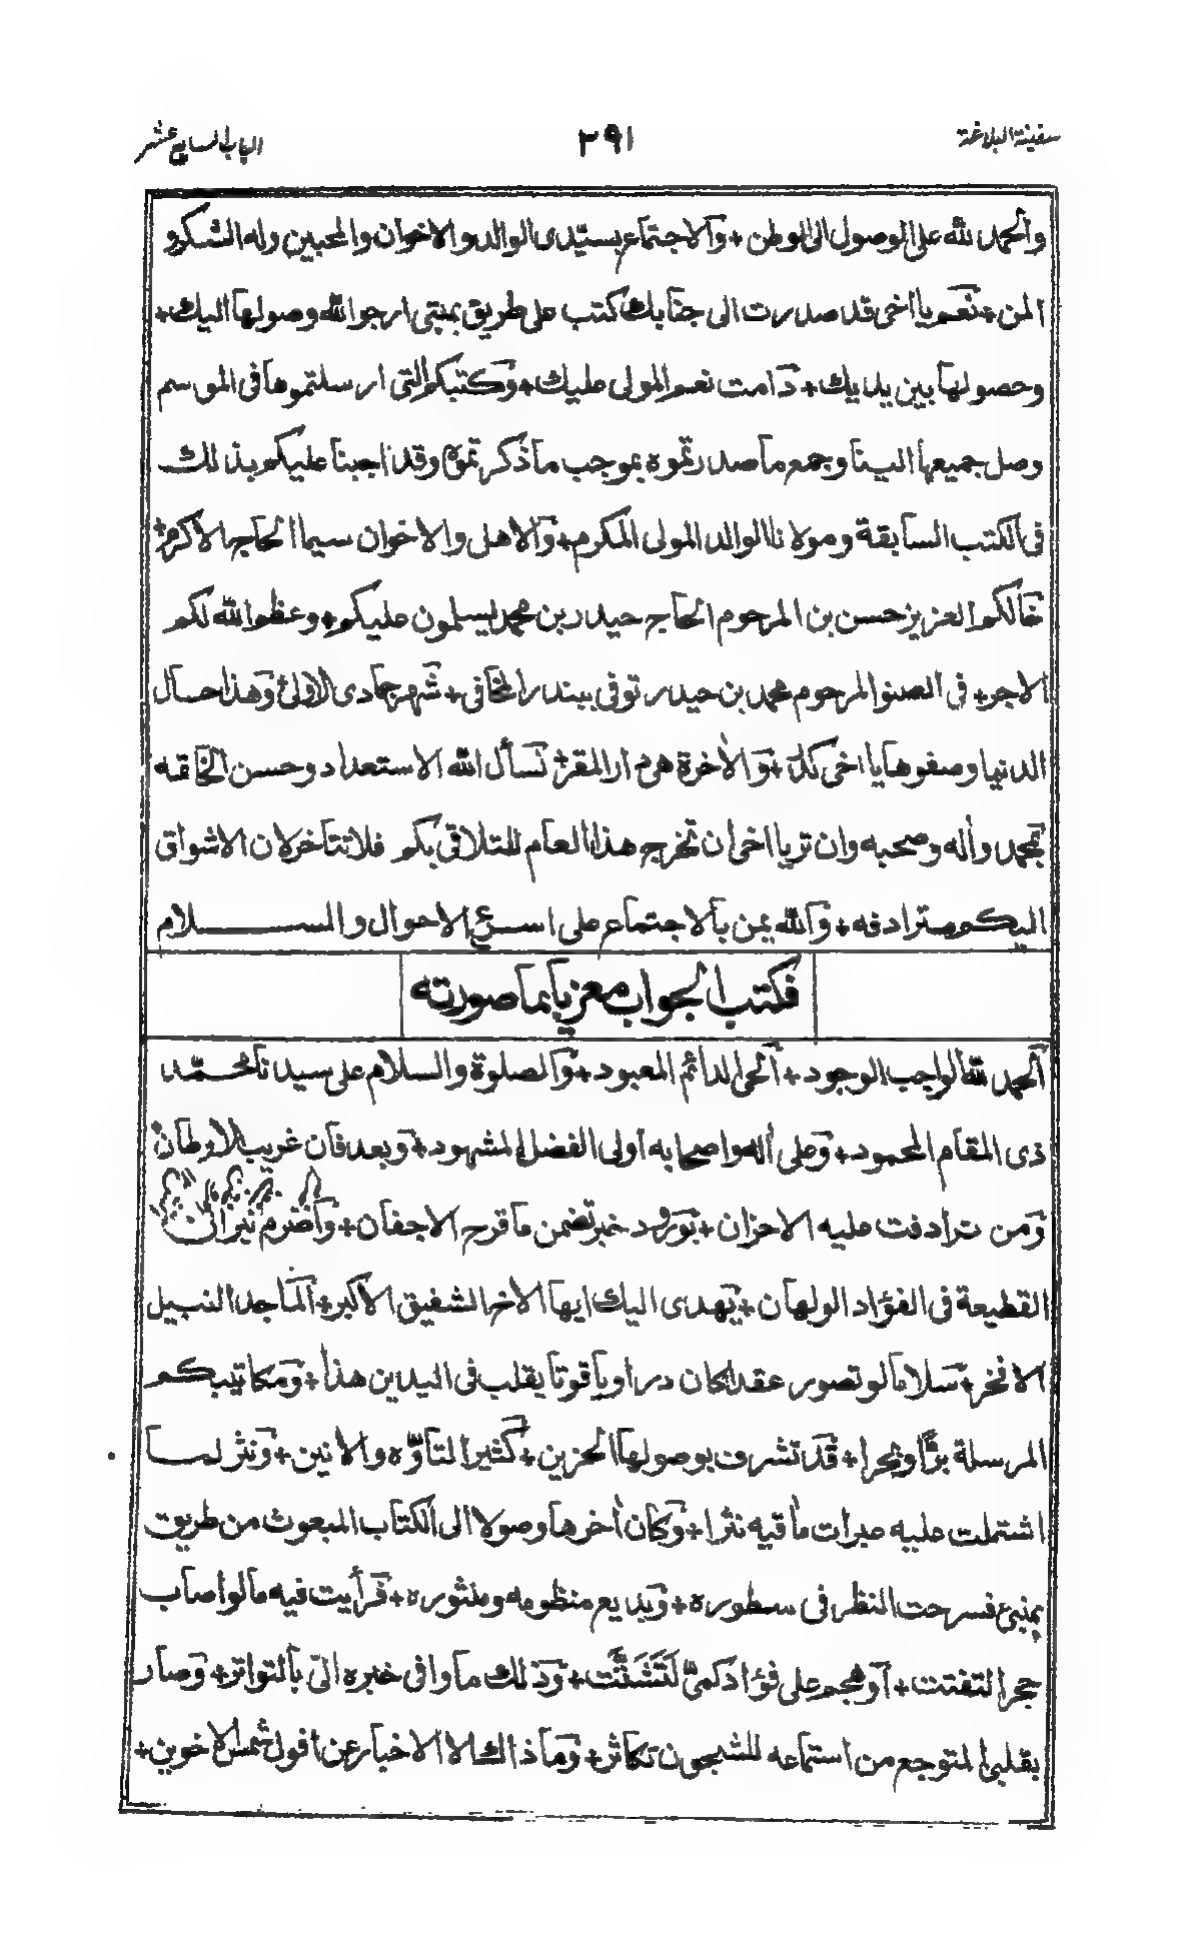 سفينة البلاغة ٣٩١ الباب السابع عشر
والحمد لله على الوصول الى الوطن + والاجتماع بسيّدى الوالد والاخوان والمحبين وله الشكر و
المن + نعم يا اخى قد صدرت الى جنابك كتب على طريق بمنبى ارجو الله وصولها اليك +
وحصولها بين يديك + دامت نعم المولى عليك + وكتبكم التى ارسلتموها فى الموسم
وصل جميعها الينا وجمع ما صدرتموه بموجب ما ذكرتموه وقد اجبنا عليكم بذلك
فى الكتب السابقة ومولانا الوالد المولى المكرم + والاهل والاخوان سيما الحاج الاكرم
خالكم العزيز حسن بن المرحوم الحاج حيدر بن محمد يسلمون عليكم + وعظم الله لكم
الاجر + فى الصنو المرحوم محمد بن حيدر توفى ببندر المخا فى + شهر جمادى الاولى وهذا حال
الدنيا وصفوها يا اخى كدر + والاخرة هى دار المقر نسأل الله الاستعداد وحسن الخاتمه
بمحمد وأله وصحبه وان تر يا اخى ان تخرج هذا العام للتلاقى بكم فلا تتأخر لان الاشواق
اليكم مترادفه + والله يمن بالاجتماع على اسرع الاحوال والسلام
فكتب الجواب معزيا بما صورته
الحمد لله الواجب الوجود + الحى الدائم المعبود + والصلوة والسلام على سيدنا محمد
ذى المقام المحمود + وعلى أله واصحابه اولى الفضل المشهود + وبعد فان غريب الاوطان
ومن ترادفت عليه الاحزان + بورود خبر تضمن ما قرح الاجفان + واضرم نيران
القطيعة فى الفؤاد الولهان + يهدى اليك ايها الاخ الشفيق الاكبر + الماجد النبيل
الافخر + سلاما لو تصور عقدا لكان درا او ياقوتا يقلب فى اليدين هذا + ومكاتيبكم
المرسلة برًّا وبحرا + قد تشرف بوصولها الحزين + كثير التأوّه والانين + ونثر لما
اشتملت عليه عبرات مأقيه نثرا + وكان أخرها وصولا الى الكتاب المبعوث من طريق
بمنبى فسرحت النظر فى سطوره + وبديع منظومه ومنثوره + فرأيت فيه ما لو اصاب
حجرا لتفتت + او هجم على فؤاد كمىّ لَتَشَتَّت + وذلك ما وافى خبره الىّ بالتواتر + وصار
بقلبى المتوجع من استماعه للشجون تكاثر + وما ذاك الا الاخبار عن افول شمس الاخوين +